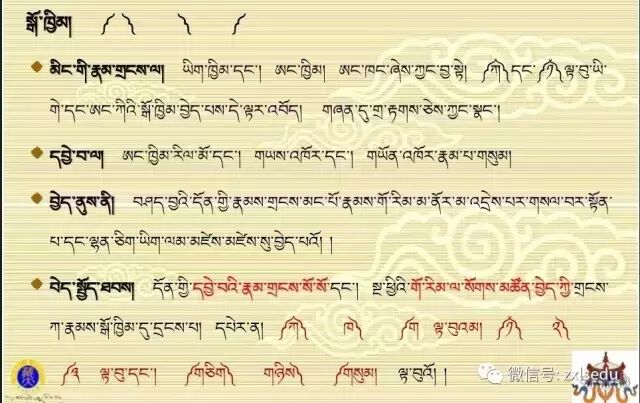 སྒོ་ཁྱིམ། ༼ ༽ ༽ ༼
མིང་གི་རྣམ་གྲངས་ལ། ཡིག་ཁྱིམ་དང་། ཨང་ཁྱིམ། ཨང་ཁང་ཞེས་ཀྱང་བྱ་སྟེ། ༼ཀ༽དང་༼༡༽ལྟ་བུ་ཡི་
གེ་དང་ཨང་ཀིའི་སྒོ་ཁྱིམ་བྱེད་པས་དེ་ལྟར་འབོད། གཞན་དུ་གྲ་རྟགས་ཅེས་ཀྱང་སྣང་།
དབྱེ་བ་ལ། ཨང་ཁྱིམ་རིལ་མོ་དང་། གཡས་འཁོར་དང་། གཡོན་འཁོར་རྣམ་པ་གསུམ།
བྱེད་ནུས་ནི། བཤད་བྱའི་དོན་གྱི་རྣམས་གྲངས་མང་པོ་རྣམས་གོ་རིམ་མ་ནོར་མ་འདྲེས་པར་གསལ་བར་སྟོན་
པ་དང་ལྷན་ཅིག་ཡིག་ལམ་མཛེས་མཛེས་སུ་བྱེད་པའོ། །
བེད་སྤྱོད་ཐབས། དོན་གྱི་དབྱེ་བའི་རྣམ་གྲངས་སོ་སོ་དང་། སྔ་ཕྱིའི་གོ་རིམ་ལ་སོགས་མཚོན་བྱེད་ཀྱི་གྲངས་
ཀ་རྣམས་སྒོ་ཁྱིམ་དུ་དྲངས་པ། དཔེར་ན། ༼ཀ༽ ཁ༽ ༼ག ལྟ་བུའམ། ༼༡༽ ༢༽
༼༣ ལྟ་བུ་དང་། ༼གཅིག༽ གཉིས༽ ༼གསུམ། ལྟ་བུའོ། །
微信号: zxlsedu